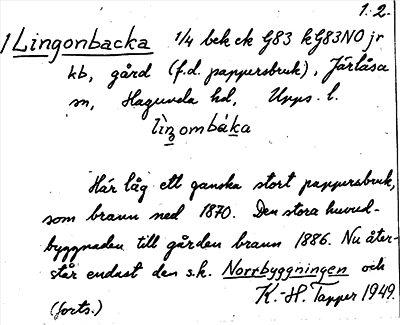 1:2.
1 Lingonbacka 1/4 bek ek G83 kG83NO jr
kb, gård (f.d. pappersbruk), Järlåsa
sn, Hagunda hd, Upps. l.
lìŋombáka
Här låg ett ganska stort pappersbruk,
som brann ned 1870. Den stora huvud-
byggnaden till gården brann 1886. Nu åter-
står endast den s.k. Norrbyggningen och
(forts.) K.-H. Tapper 1949.